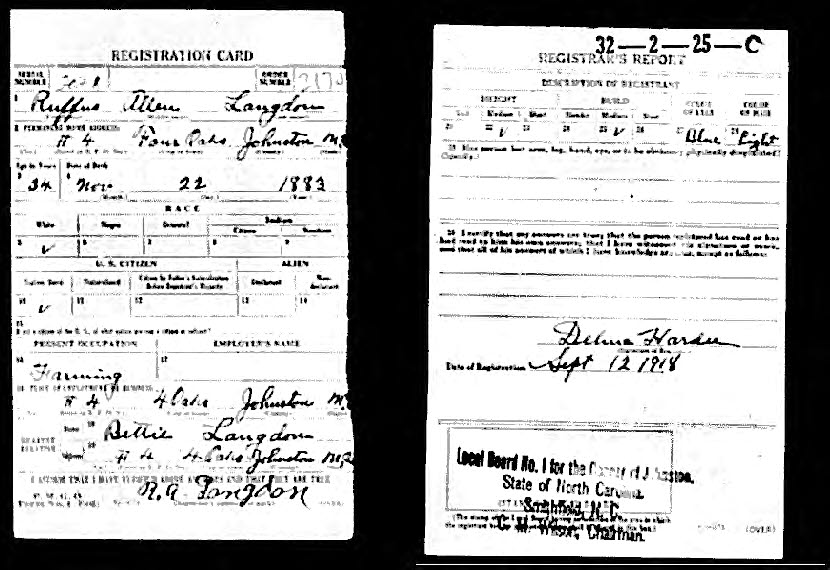 REGISTRATION CARD
SERIAL NUMBER
ORDER NUMBER
1 Ruffus Allen Langdon
2 PERMANENT HOME ADDRESS
# 4 Four Oaks Johnston N.C.
Age in Years Date of Birth
34 Nov 22 1883
RACE
White Negro Oriental Indian
Citizen
5 ✓ 6 7 8 9
U. S. CITIZEN ALIEN
Native Born Naturalized Citizen by Father's Naturalization Before Registrant's Majority Declarant Non-declarant
10 ✓ 11 12 13 14
15
If not a citizen of the U. S., of what nation are you a citizen or subject?
PRESENT OCCUPATION EMPLOYER'S NAME
16 17
Farming
18 PLACE OF EMPLOYMENT OR BUSINESS
# 4 4 Oaks Johnston N.
NEAREST RELATIVE
Name 19 Bettie Langdon
Address 20 # 4 4 Oaks Johnston N.C.
I AFFIRM THAT I HAVE VERIFIED ABOVE ANSWERS AND THAT THEY ARE TRUE
R. A. Langdon
32—2—25—C
REGISTRAR'S REPORT
DESCRIPTION OF REGISTRANT
HEIGHT BUILD COLOR OF EYES COLOR OF HAIR
Tall Medium Short Slender Medium Stout
21 22 ✓ 23 24 25 ✓ 26 27 Blue 28 Light
29 Has person lost arm, leg, hand, eye, or is he obviously physically disqualified?
(Specify.)
30 I certify that my answers are true; that the person registered has read or has
had read to him his own answers; that I have witnessed his signature or mark,
and that all of his answers of which I have knowledge are true, except as follows:
Date of Registration Sept 12 1918
Local Board No. 1 for the County of Johnston,
State of North Carolina.
Smithfield, N. C.
Chairman.
(OVER)